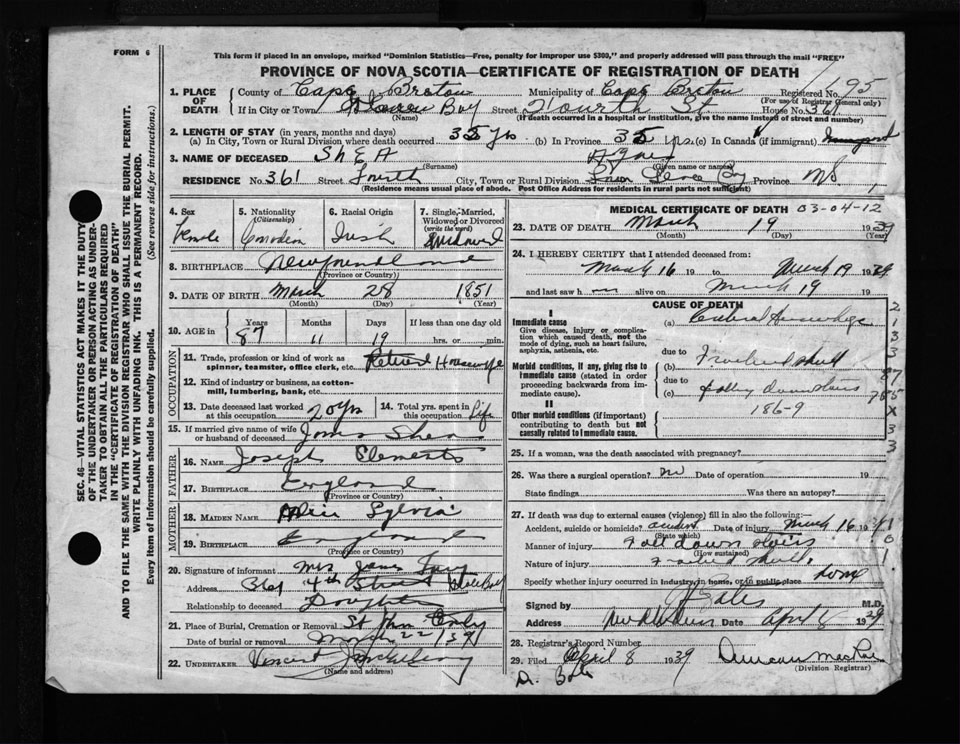 FORM 6
This form if placed in an envelope, marked "Dominion Statistics—Free, penalty for improper use $300," and properly addressed will pass through the mail "FREE"
PROVINCE OF NOVA SCOTIA—CERTIFICATE OF REGISTRATION OF DEATH
1. PLACE OF DEATH County of Cape Breton Municipality of Cape Breton Registered No. 195
(For use of Registrar General only)
If in City or Town Bay Street Fourth St House No. 361
(Name) (If death occurred in a hospital or institution, give the name instead of street and number)
2. LENGTH OF STAY (in years, months and days)
(a) In City, Town or Rural Division where death occurred 35 yrs (b) In Province 35 yrs (c) In Canada (if immigrant)
3. NAME OF DECEASED Shea
(Surname) (Given name or names)
RESIDENCE No. 361 Street Fourth City, Town or Rural Division Bay Province NS
(Residence means usual place of abode. Post Office Address for residents in rural parts not sufficient)
4. Sex Female
5. Nationality (Citizenship) Canadian
6. Racial Origin Irish
7. Single, Married, Widowed or Divorced (write the word) Widowed
8. BIRTHPLACE Newfoundland
(Province or Country)
9. DATE OF BIRTH March 28 1851
(Month) (Day) (Year)
10. AGE in Years 87 Months 11 Days 19 If less than one day old hrs. or min.
OCCUPATION
11. Trade, profession or kind of work as spinner, teamster, office clerk, etc. Retired Housewife
12. Kind of industry or business, as cotton-mill, lumbering, bank, etc.
13. Date deceased last worked at this occupation 20 yrs
14. Total yrs. spent in this occupation Life
15. If married give name of wife or husband of deceased James Shea
FATHER
16. Name Joseph Clements
17. BIRTHPLACE England
(Province or Country)
MOTHER
18. MAIDEN NAME Sylvia
19. BIRTHPLACE England
(Province or Country)
20. Signature of informant Mrs James
Address 361 4th Street
Relationship to deceased Daughter
21. Place of Burial, Cremation or Removal St
Date of burial or removal March 22/39
22. UNDERTAKER Vincent
(Name and address)
MEDICAL CERTIFICATE OF DEATH 03-04-12
23. DATE OF DEATH March 19 1939
(Month) (Day) (Year)
24. I HEREBY CERTIFY that I attended deceased from:
March 16 19 to March 19 1939
and last saw h alive on March 19 19
CAUSE OF DEATH
I
Immediate cause (a) Cerebral Hemorrhage
Give disease, injury or complication which caused death, not the mode of dying, such as heart failure, asphyxia, asthenia, etc.
due to
Morbid conditions, if any, giving rise to immediate cause (stated in order proceeding backwards from immediate cause). (b) Fractured skull
due to
(c) falling downstairs
II
Other morbid conditions (if important) contributing to death but not causally related to immediate cause. 186-9
25. If a woman, was the death associated with pregnancy?
26. Was there a surgical operation? no Date of operation 19
State findings Was there an autopsy?
27. If death was due to external causes (violence) fill in also the following:—
Accident, suicide or homicide? accident Date of injury March 16 19
(State which)
Manner of injury Fall down stairs
(How sustained)
Nature of injury Fractured skull
Specify whether injury occurred in Industry, in home, or in public place home
Signed by M.D.
Address Date April 8 1939
28. Registrar's Record Number
29. Filed April 8 1939 Duncan MacRae
(Division Registrar)
SEC. 46—VITAL STATISTICS ACT MAKES IT THE DUTY OF THE UNDERTAKER OR PERSON ACTING AS UNDERTAKER TO OBTAIN ALL THE PARTICULARS REQUIRED IN THE "CERTIFICATE OF REGISTRATION OF DEATH" AND TO FILE THE SAME WITH THE DIVISION REGISTRAR WHO SHALL ISSUE THE BURIAL PERMIT.
WRITE PLAINLY WITH UNFADING INK. THIS IS A PERMANENT RECORD.
Every item of information should be carefully supplied. (See reverse side for instructions.)